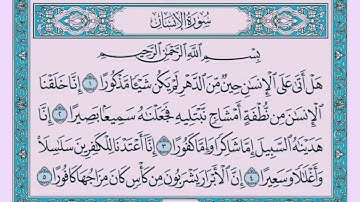 سُورَةُ الإِنسَانِ
بِسْمِ اللَّهِ الرَّحْمَٰنِ الرَّحِيمِ
هَلْ أَتَىٰ عَلَى الْإِنسَٰنِ حِينٌ مِّنَ الدَّهْرِ لَمْ يَكُن شَيْـًٔا مَّذْكُورًا ١ إِنَّا خَلَقْنَا
الْإِنسَٰنَ مِن نُّطْفَةٍ أَمْشَاجٍ نَّبْتَلِيهِ فَجَعَلْنَٰهُ سَمِيعًۢا بَصِيرًا ٢ إِنَّا
هَدَيْنَٰهُ السَّبِيلَ إِمَّا شَاكِرًا وَإِمَّا كَفُورًا ٣ إِنَّآ أَعْتَدْنَا لِلْكَٰفِرِينَ سَلَٰسِلَا۟
وَأَغْلَٰلًا وَسَعِيرًا ٤ إِنَّ الْأَبْرَارَ يَشْرَبُونَ مِن كَأْسٍ كَانَ مِزَاجُهَا كَافُورًا ٥